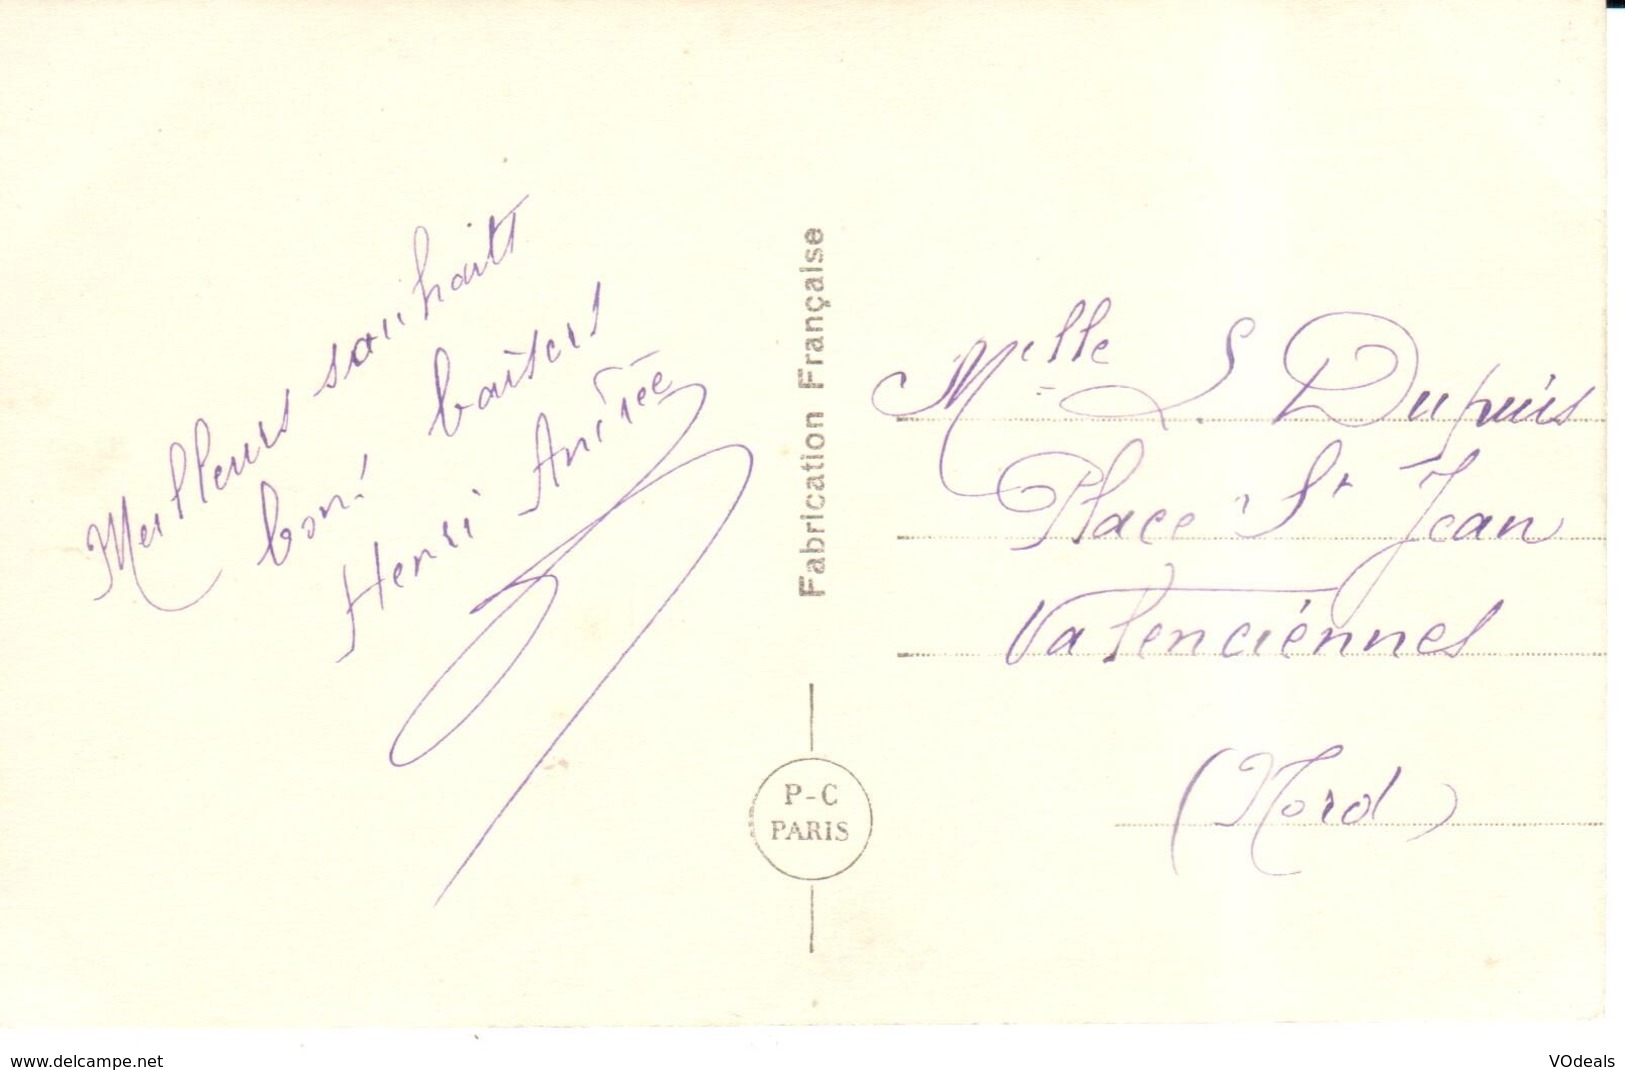 Meilleurs souhaits
bons baisers
Henri Andrée
Fabrication Française
P-C
PARIS
Melle S. Dupuis
Place St Jean
Valenciennes
(Nord)
www.delcampe.net
VOdeals